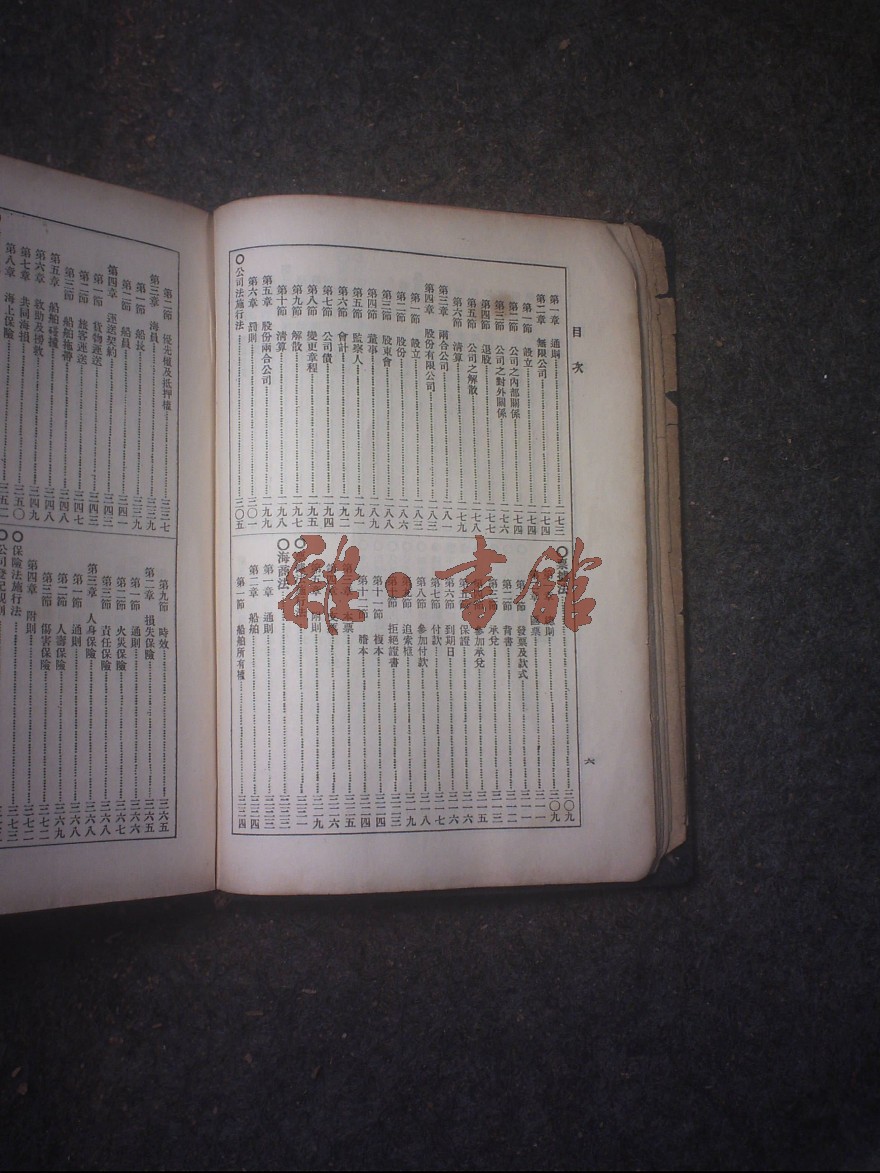 目次
第一章 通則 二七三
第二章 無限公司 二七四
第一節 設立 二七四
第二節 公司之內部關係 二七四
第三節 公司之對外關係 二七六
第四節 退股 二七七
第五節 公司之解散 二七八
第六節 清算 二七九
第三章 兩合公司 二八一
第四章 股份有限公司 二八三
第一節 設立 二八三
第二節 股份 二八六
第三節 股東會 二八八
第四節 董事 二八九
第五節 監察人 二九一
第六節 會計 二九二
第七節 公司債 二九四
第八節 變更章程 二九五
第九節 解散 二九七
第十節 清算 二九八
第五章 股份兩合公司 二九九
第六章 罰則 三〇一
〇公司法施行法 三〇五
〇票據法 三〇九
通則 三〇九
匯票 三一一
發票及款式 三一一
第二節 背書 三一二
第三節 承兌 三一三
參加承兌 三一五
保證 三一六
第六節 到期日 三一六
第七節 付款 三一七
第八節 參加付款 三一八
追索權 三一九
拒絕證書 三二三
第十一節 複本 三二四
第十二節 謄本 三二四
本票 三二五
三二六
附則 三一九
三二一
〇海商法 三二三
第一章 通則 三二三
第二章 船舶 三二四
第一節 船舶所有權 三二四
六
第二節 優先權及抵押權 三三七
第三章 海員 三三九
第一節 船長 三三九
第二節 船員 三四一
第四章 運送契約 三四三
第一節 貨物運送 三四三
第二節 旅客運送 三四八
第三節 船舶拖帶 三四八
第五章 船舶碰撞 三四八
第六章 救助及撈救 三四九
第七章 共同海損 三五〇
第八章 海上保險 三五二
第九節 時效 三六五
第二章 損失保險 三六五
第一節 通則 三六六
第二節 火災保險 三六七
第三節 責任保險 三六八
第三章 人身保險 三六八
第一節 通則 三六八
第二節 人壽保險 三六九
第三節 傷害保險 三七二
第四章 附則 三七二
〇保險法施行法 三七三
〇公司登記規則
雜·書館